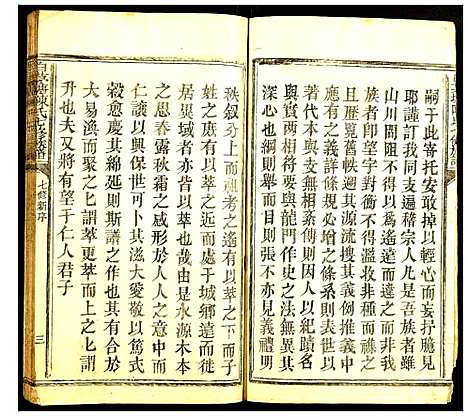 嗣于此寄托安敢掉以輕心而妄抒臆見
耶謹訂我同支遍稽宗人凡吾族者雖
山川間阻不得以為遙遠而或遺非吾
族者即望于對衡不得濫收非種而祼之
應有之義詳條表列條系表則世以
且歷覧舊軼其源流搜其義例推義中
著代本與支無相紊傳則因人以紀蹟名
異體例要與龍門作史之法無異其
目則張不亦見義禮明
秩叙分上而祖考之遙有以萃之下而子
姓之庶有以萃之近而處于城鄉遠而徙
居異域者亦有以萃之也哉由是水源木本
之思春露秋霜之感形於人人之意中而
仁讓以興保世可卜其滋大愛敬以篤式
穀愈慶其綿延則斯譜之作也其有合於
大易渙而聚之上謂萃萃而上之上謂
升也夫又將有望于仁人君子
七修新序
三